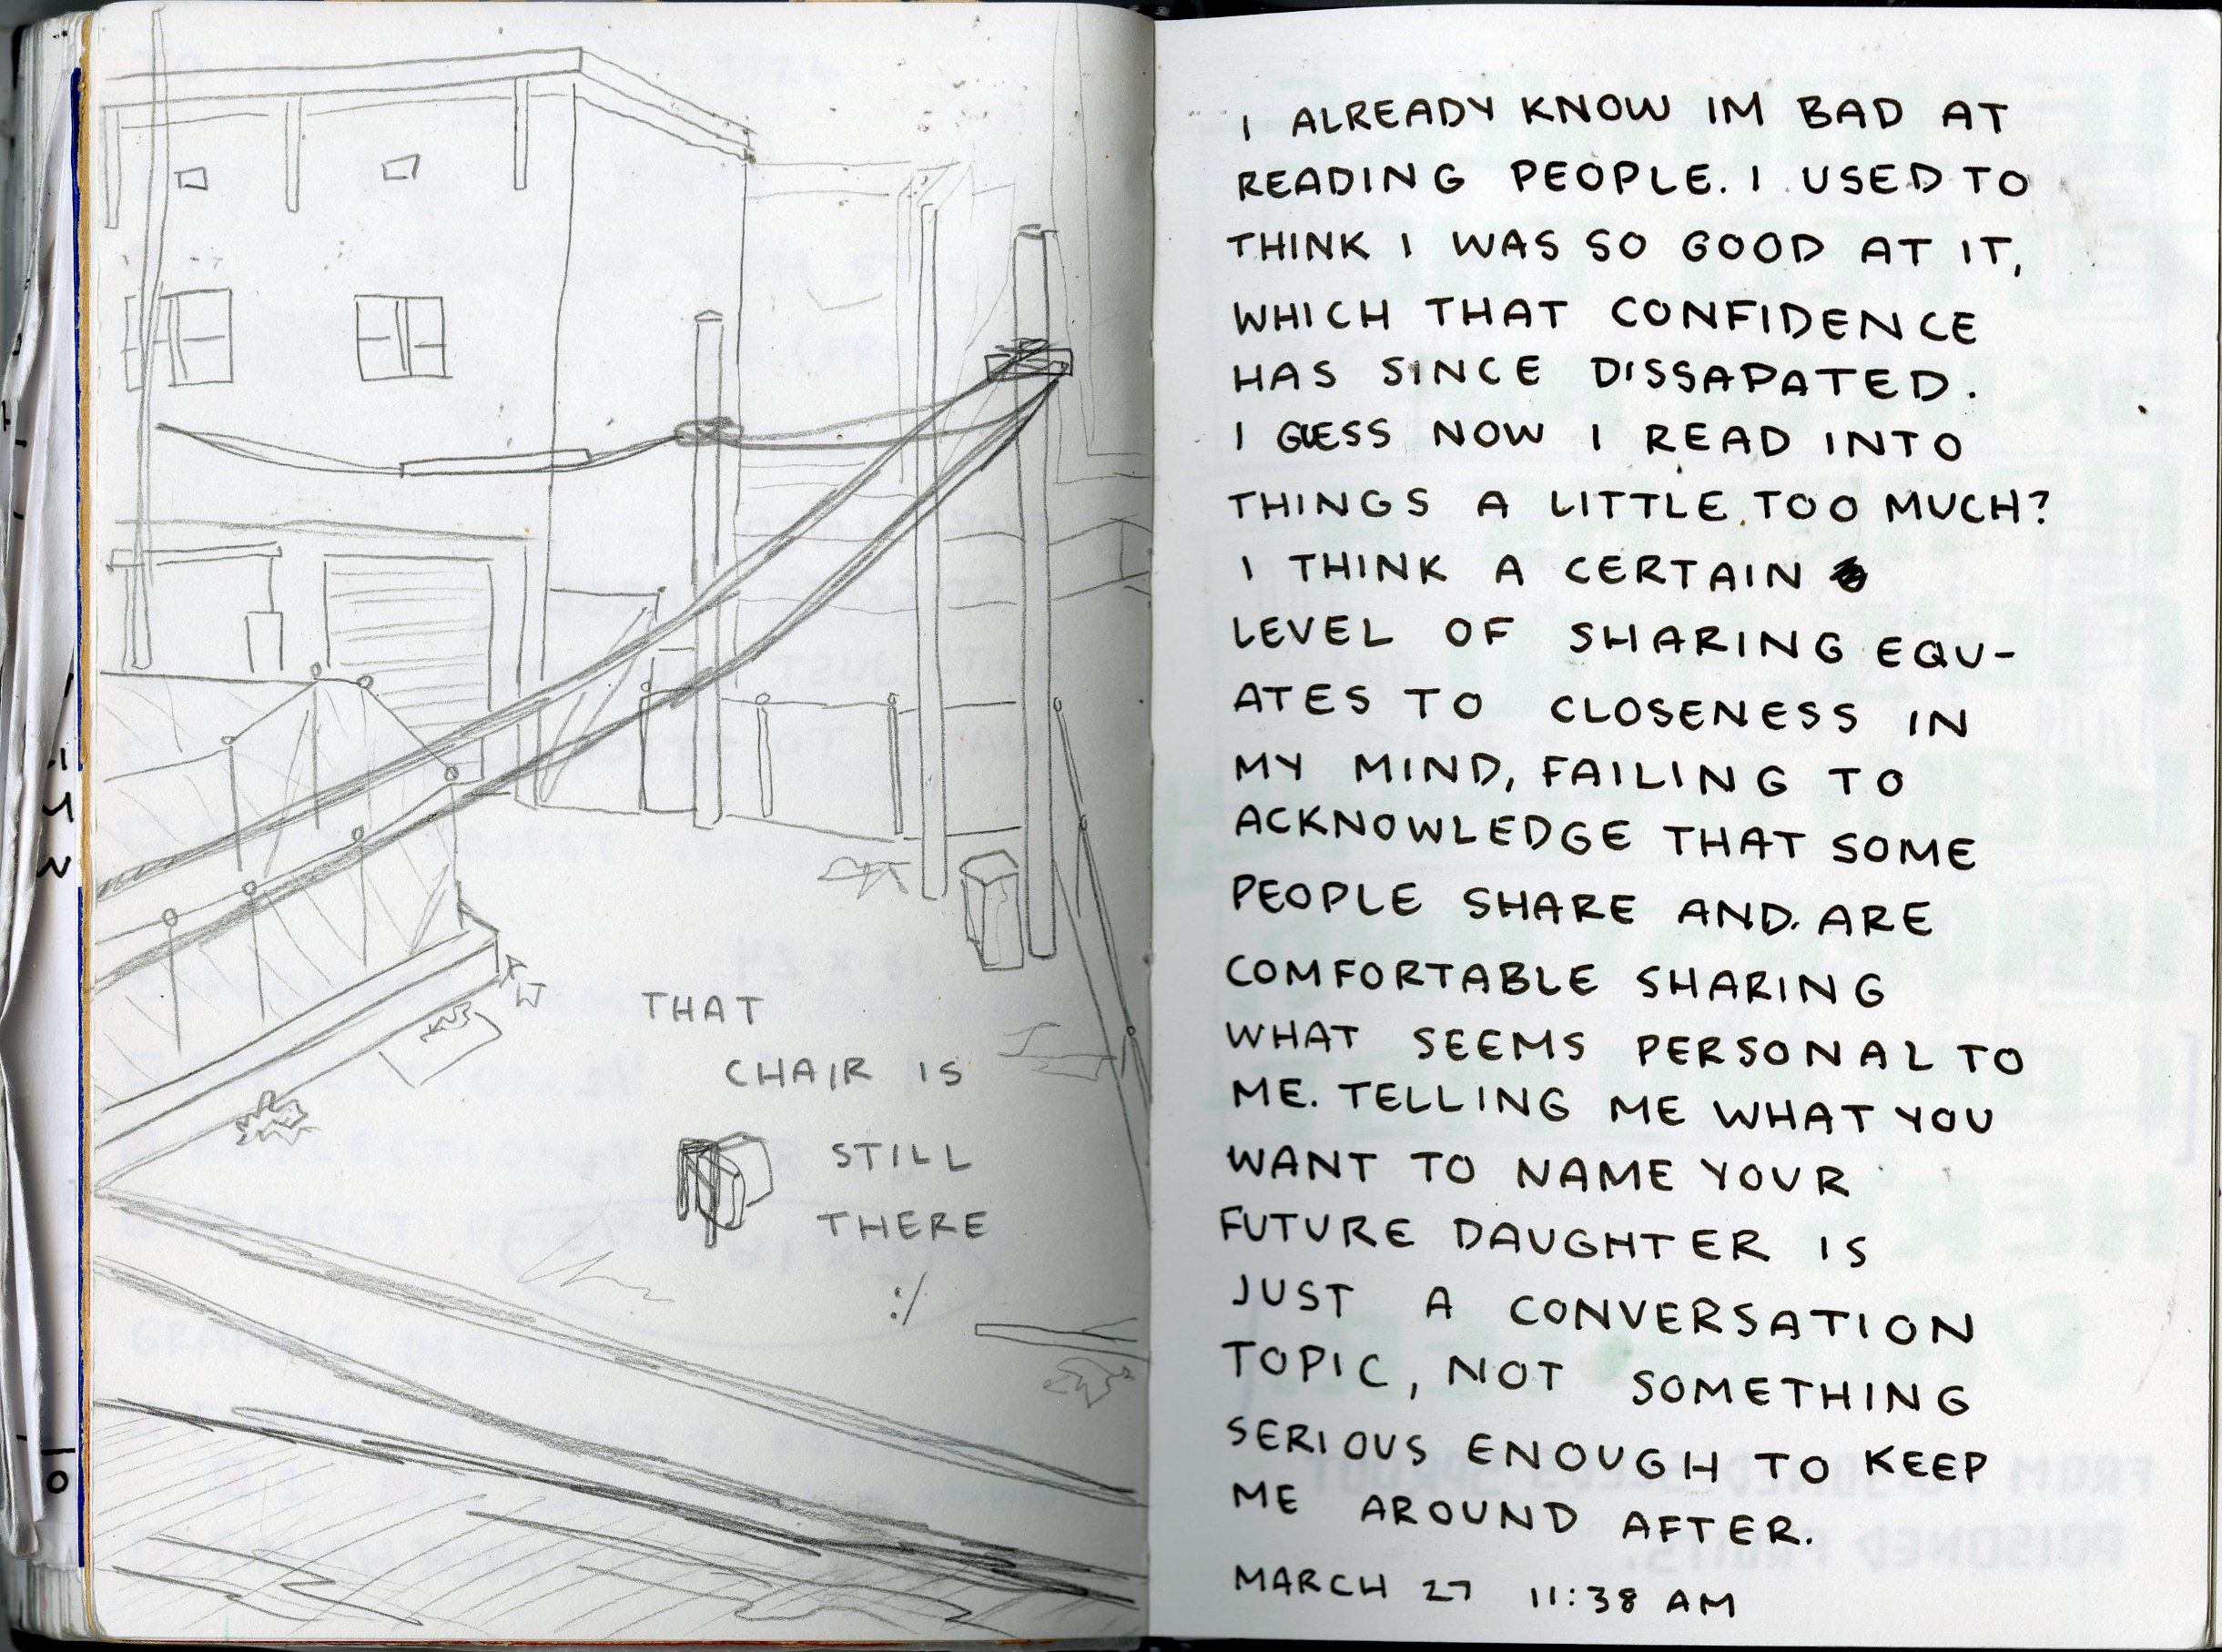 THAT
CHAIR IS
STILL
THERE
:/
I ALREADY KNOW IM BAD AT
READING PEOPLE. I USED TO
THINK I WAS SO GOOD AT IT,
WHICH THAT CONFIDENCE
HAS SINCE DISSAPATED.
I GUESS NOW I READ INTO
THINGS A LITTLE TOO MUCH?
I THINK A CERTAIN
LEVEL OF SHARING EQU-
ATES TO CLOSENESS IN
MY MIND, FAILING TO
ACKNOWLEDGE THAT SOME
PEOPLE SHARE AND ARE
COMFORTABLE SHARING
WHAT SEEMS PERSONAL TO
ME. TELLING ME WHAT YOU
WANT TO NAME YOUR
FUTURE DAUGHTER IS
JUST A CONVERSATION
TOPIC, NOT SOMETHING
SERIOUS ENOUGH TO KEEP
ME AROUND AFTER.
MARCH 27 11:38 AM